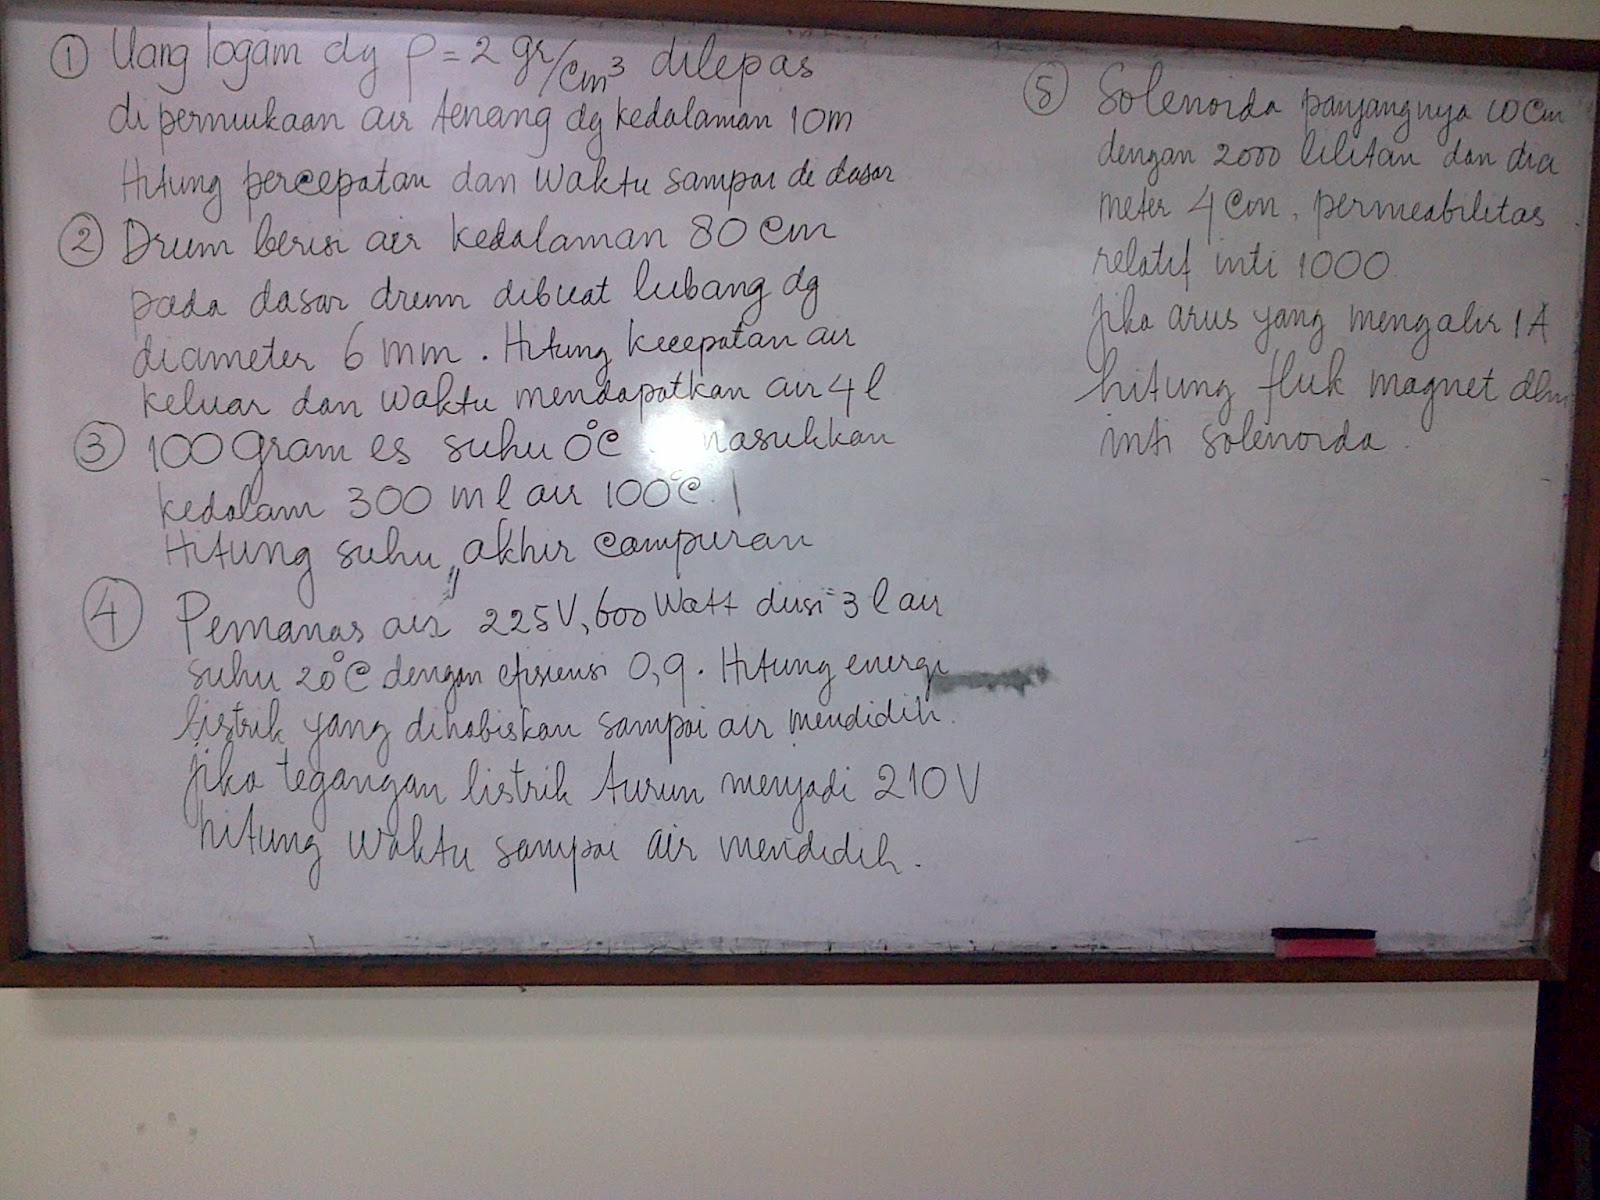 ① Uang logam dg ρ = 2 gr/cm³ dilepas
di permukaan air tenang dg kedalaman 10m
Hitung percepatan dan waktu sampai di dasar
② Drum berisi air kedalaman 80 cm
pada dasar drum dibuat lubang dg
diameter 6 mm. Hitung kecepatan air
keluar dan waktu mendapatkan air 4 l
③ 100 gram es suhu 0°C masukkan
kedalam 300 ml air 100°C.
Hitung suhu akhir campuran
④ Pemanas air 225V, 600 Watt diisi 3 l air
suhu 20°C dengan efisiensi 0,9. Hitung energi
listrik yang dihabiskan sampai air mendidih.
jika tegangan listrik turun menjadi 210 V
hitung waktu sampai air mendidih.
⑤ Solenoida panjangnya 10 cm
dengan 2000 lilitan dan dia
meter 4 cm, permeabilitas
relatif inti 1000.
jika arus yang mengalir 1 A
hitung fluk magnet dlm
inti solenoida.